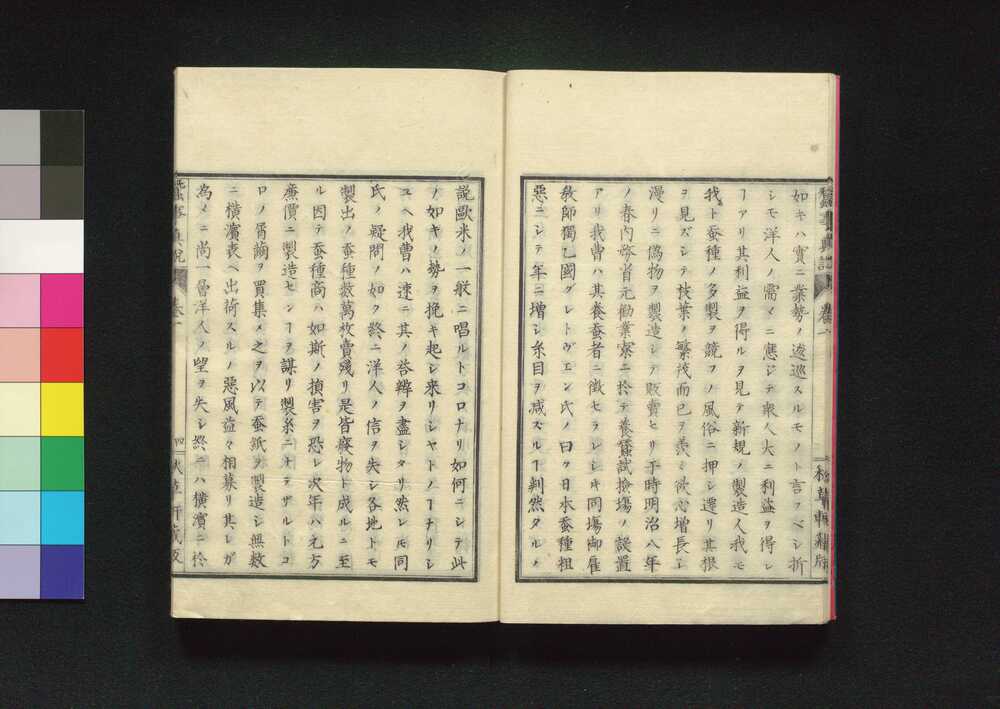 如キハ實ニ業勢ノ逡巡スルモノト言フベシ折
シモ洋人ノ需メニ應ジテ衆人大ニ利益ヲ得シ
ヿアリ其利益ヲ得ルヲ見テ新規ノ製造人我モ
我ト蚕種ノ多製ヲ競フノ風俗ニ押シ遷リ其根
ヲ見ズシテ枝葉ノ繁茂而已ヲ羨ミ欲心増長シ
漫リニ偽物ヲ製造シテ販賣セリ于時明治八年
ノ春内務省元勧業寮ニ於テ養蠶試撿場ノ設置
アリ我曹ハ其養蚕者ニ徴セラレシキ同場御雇
敎師獨乙國グレトヴエン氏ノ曰ク日本蚕種粗
惡ニシテ年ニ増シ糸目ヲ减ズルヿ判然タルノ
説歐米ノ一般ニ唱ルトコロナリ如何ニシテ此
ノ如キノ勢ヲ挽キ起シ来リシヤトノヿナリシ
ユヘ我曹ハ速ニ其ノ答辨ヲ盡シタリ然レモ同
氏ノ疑問ノ如ク終ニ洋人ノ信ヲ失シ各地トモ
製出ノ蚕種数萬枚賣殘リ是皆廢物ト成ルニ至
ル因テ蚕種商ハ如斯ノ損害ヲ恐レ次年ハ元方
廉價ニ製造センヿヲ謀リ製糸ニナラザルトコ
ロノ屑繭ヲ買集メ之ヲ以テ蚕紙ヲ製造シ無数
ニ横濱表ヘ出荷スルノ惡風益々相募リ其レガ
為メニ尚一層洋人ノ望ヲ失シ終ニハ横濱ニ於
蠶事真説 卷一 四